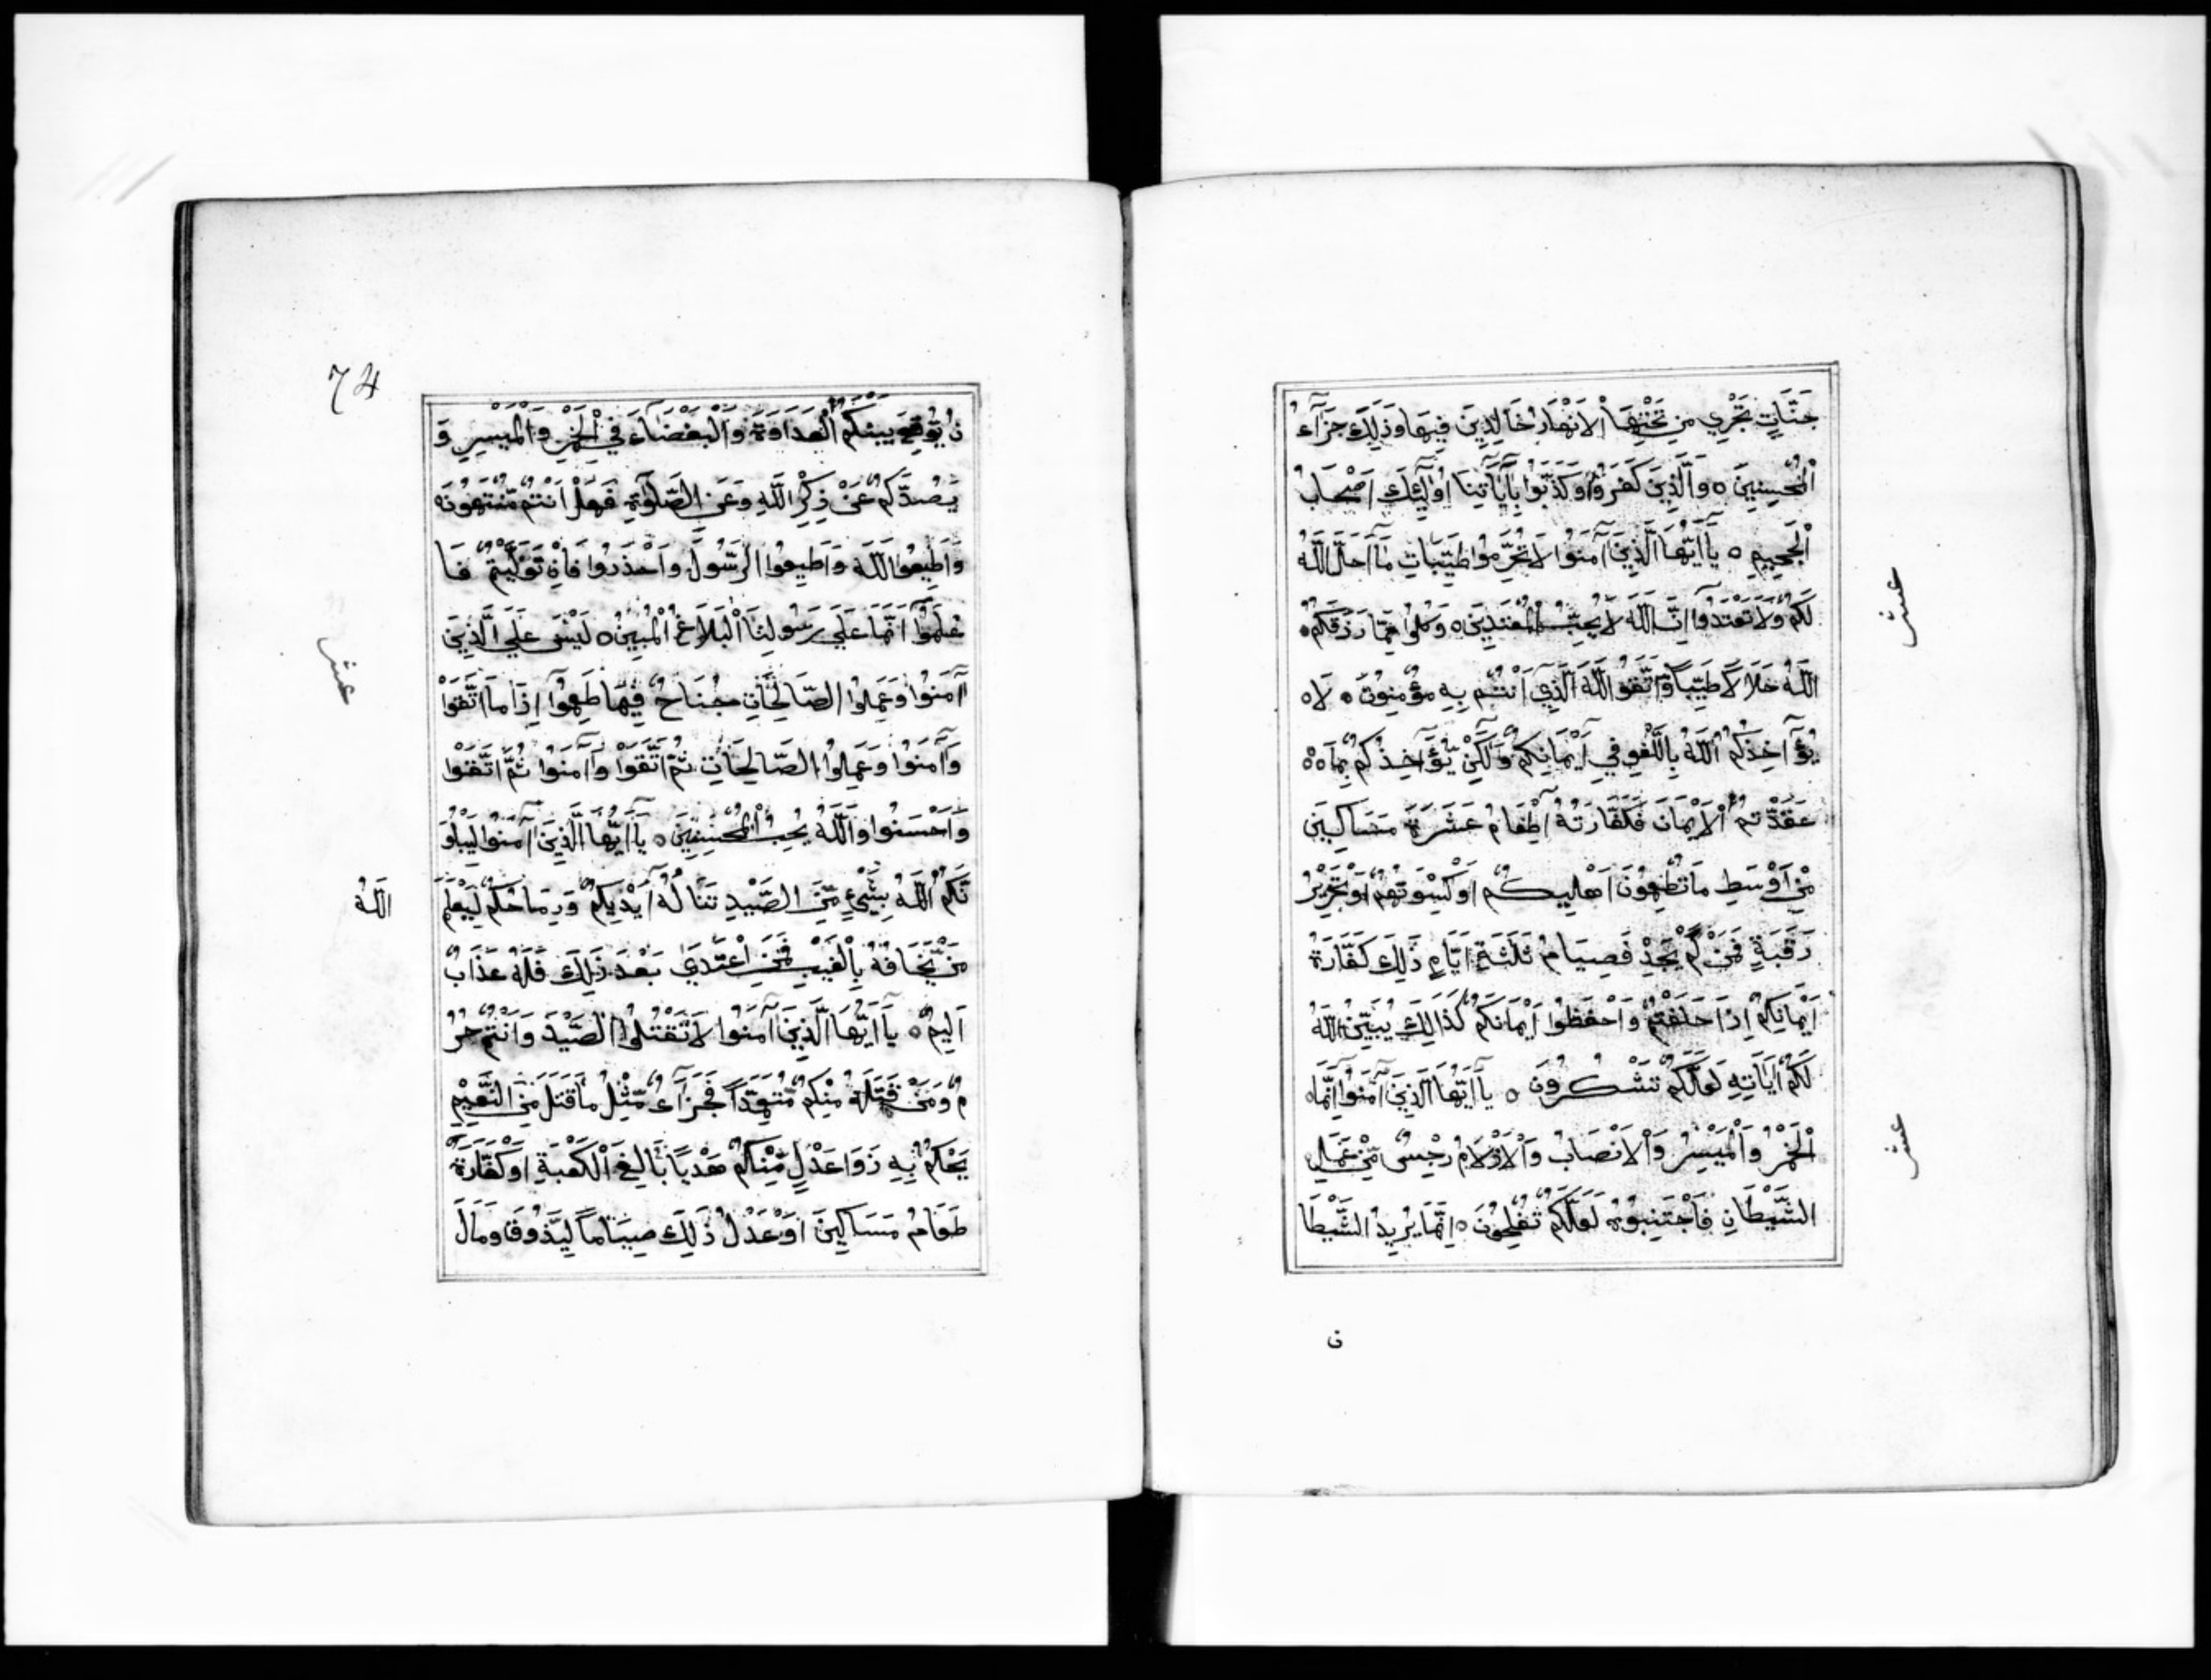 جَنَّاتٍ تَجْرِي مِن تَحْتِهَا الْاَنْهَارُ خَالِدِينَ فِيهَا وَذَلِكَ جَزَآءُ
الْمُحْسِنِينَ ه وَالَّذِينَ كَفَرُوْا وَكَذَّبُوْا بِآيَاتِنَا اُولَٓئِكَ اَصْحَابُ
الْجَحِيمِ ه يَآ اَيُّهَا الَّذِينَ اٰمَنُوا لَا تُحَرِّمُوْا طَيِّبَاتِ مَآ اَحَلَّ اللَّهُ
لَكُمْ وَلَا تَعْتَدُوآ اِنَّ اللَّهَ لَا يُحِبُّ الْمُعْتَدِينَ ه وَكُلُوْا مِمَّا رَزَقَكُمُ ه
اللَّهُ حَلَالًا طَيِّبًا وَّاتَّقُوا اللَّهَ الَّذِيٓ اَنْتُم بِهِ مُؤْمِنُونَ ه لَا ه
يُؤَآخِذُكُمُ اللَّهُ بِاللَّغْوِ فِيٓ اَيْمَانِكُمْ وَلَكِنْ يُّؤَآخِذُكُمْ بِمَا ه ه
عَقَّدْتُمُ الْاَيْمَانَ فَكَفَّارَتُهُٓ اِطْعَامُ عَشَرَةِ مَسَاكِينَ
مِنْ اَوْسَطِ مَا تُطْعِمُونَ اَهْلِيكُمْ اَوْ كِسْوَتُهُمْ اَوْ تَحْرِيْرُ
رَقَبَةٍ فَمَنْ لَّمْ يَجِدْ فَصِيَامُ ثَلَثَةِ اَيَّامٍ ذَلِكَ كَفَّارَةُ
اَيْمَانِكُمْ اِذَا حَلَفْتُمْ وَاحْفَظُوا اَيْمَانَكُمْ كَذَالِكَ يُبَيِّنُ اللَّهُ
لَكُمْ اٰيَاتِهِ لَعَلَّكُمْ تَشْكُرُونَ ه يَآ اَيُّهَا الَّذِينَ اٰمَنُوٓا اِنَّمَا ه
الْخَمْرُ وَالْمَيْسِرُ وَالْاَنْصَابُ وَالْاَزْلَامُ رِجْسٌ مِّنْ عَمَلِ
الشَّيْطَانِ فَاجْتَنِبُوْهُ لَعَلَّكُمْ تُفْلِحُونَ ه اِنَّمَا يُرِيدُ الشَّيْطَا
عشر
عشر
ن
74
نُ يُّوْقِعَ بَيْنَكُمُ الْعَدَاوَةَ وَالْبَغْضَآءَ فِي الْخَمْرِ وَالْمَيْسِرِ وَ
يَصُدَّكُمْ عَنْ ذِكْرِ اللَّهِ وَعَنِ الصَّلَوٰةِ فَهَلْ اَنْتُمْ مُّنْتَهُونَ ه
وَاَطِيعُوا اللَّهَ وَاَطِيعُوا الرَّسُولَ وَاحْذَرُوا فَاِنْ تَوَلَّيْتُمْ فَا
عْلَمُوٓا اَنَّمَا عَلَي رَسُولِنَا الْبَلَاغُ الْمُبِينُ ه لَيْسَ عَلَي الَّذِينَ
اٰمَنُوا وَعَمِلُوا الصَّالِحَاتِ جُنَاحٌ فِيمَا طَعِمُوٓا اِذَا مَا اتَّقَوْا
وَاٰمَنُوْا وَعَمِلُوا الصَّالِحَاتِ ثُمَّ اتَّقَوْا وَاٰمَنُوا ثُمَّ اتَّقَوْا
وَاَحْسَنُوا وَاللَّهُ يُحِبُّ الْمُحْسِنِينَ ه يَآ اَيُّهَا الَّذِينَ اٰمَنُوا لَيَبْلُوَ
نَّكُمُ اللَّهُ بِشَيْءٍ مِّنَ الصَّيْدِ تَنَالُهُٓ اَيْدِيكُمْ وَرِمَاحُكُمْ لِيَعْلَمَ
اللَّهُ
مَنْ يَّخَافُهُ بِالْغَيْبِ فَمَنِ اعْتَدَي بَعْدَ ذَلِكَ فَلَهُ عَذَابٌ
اَلِيمٌ ه يَآ اَيُّهَا الَّذِينَ اٰمَنُوا لَا تَقْتُلُوا الصَّيْدَ وَاَنْتُمْ حُرُ
مٌ وَمَنْ قَتَلَهُ مِنْكُمْ مُّتَعَمِّدًا فَجَزَآءٌ مِّثْلُ مَا قَتَلَ مِنَ النَّعَيْمِ
يَحْكُمُ بِهِ ذَوَا عَدْلٍ مِّنْكُمْ هَدْيًا بَالِغَ الْكَعْبَةِ اَوْ كَفَّارَةٌ
طَعَامُ مَسَاكِينَ اَوْ عَدْلُ ذَلِكَ صِيَامًا لِيَذُوقَ وَبَالَ
عشر